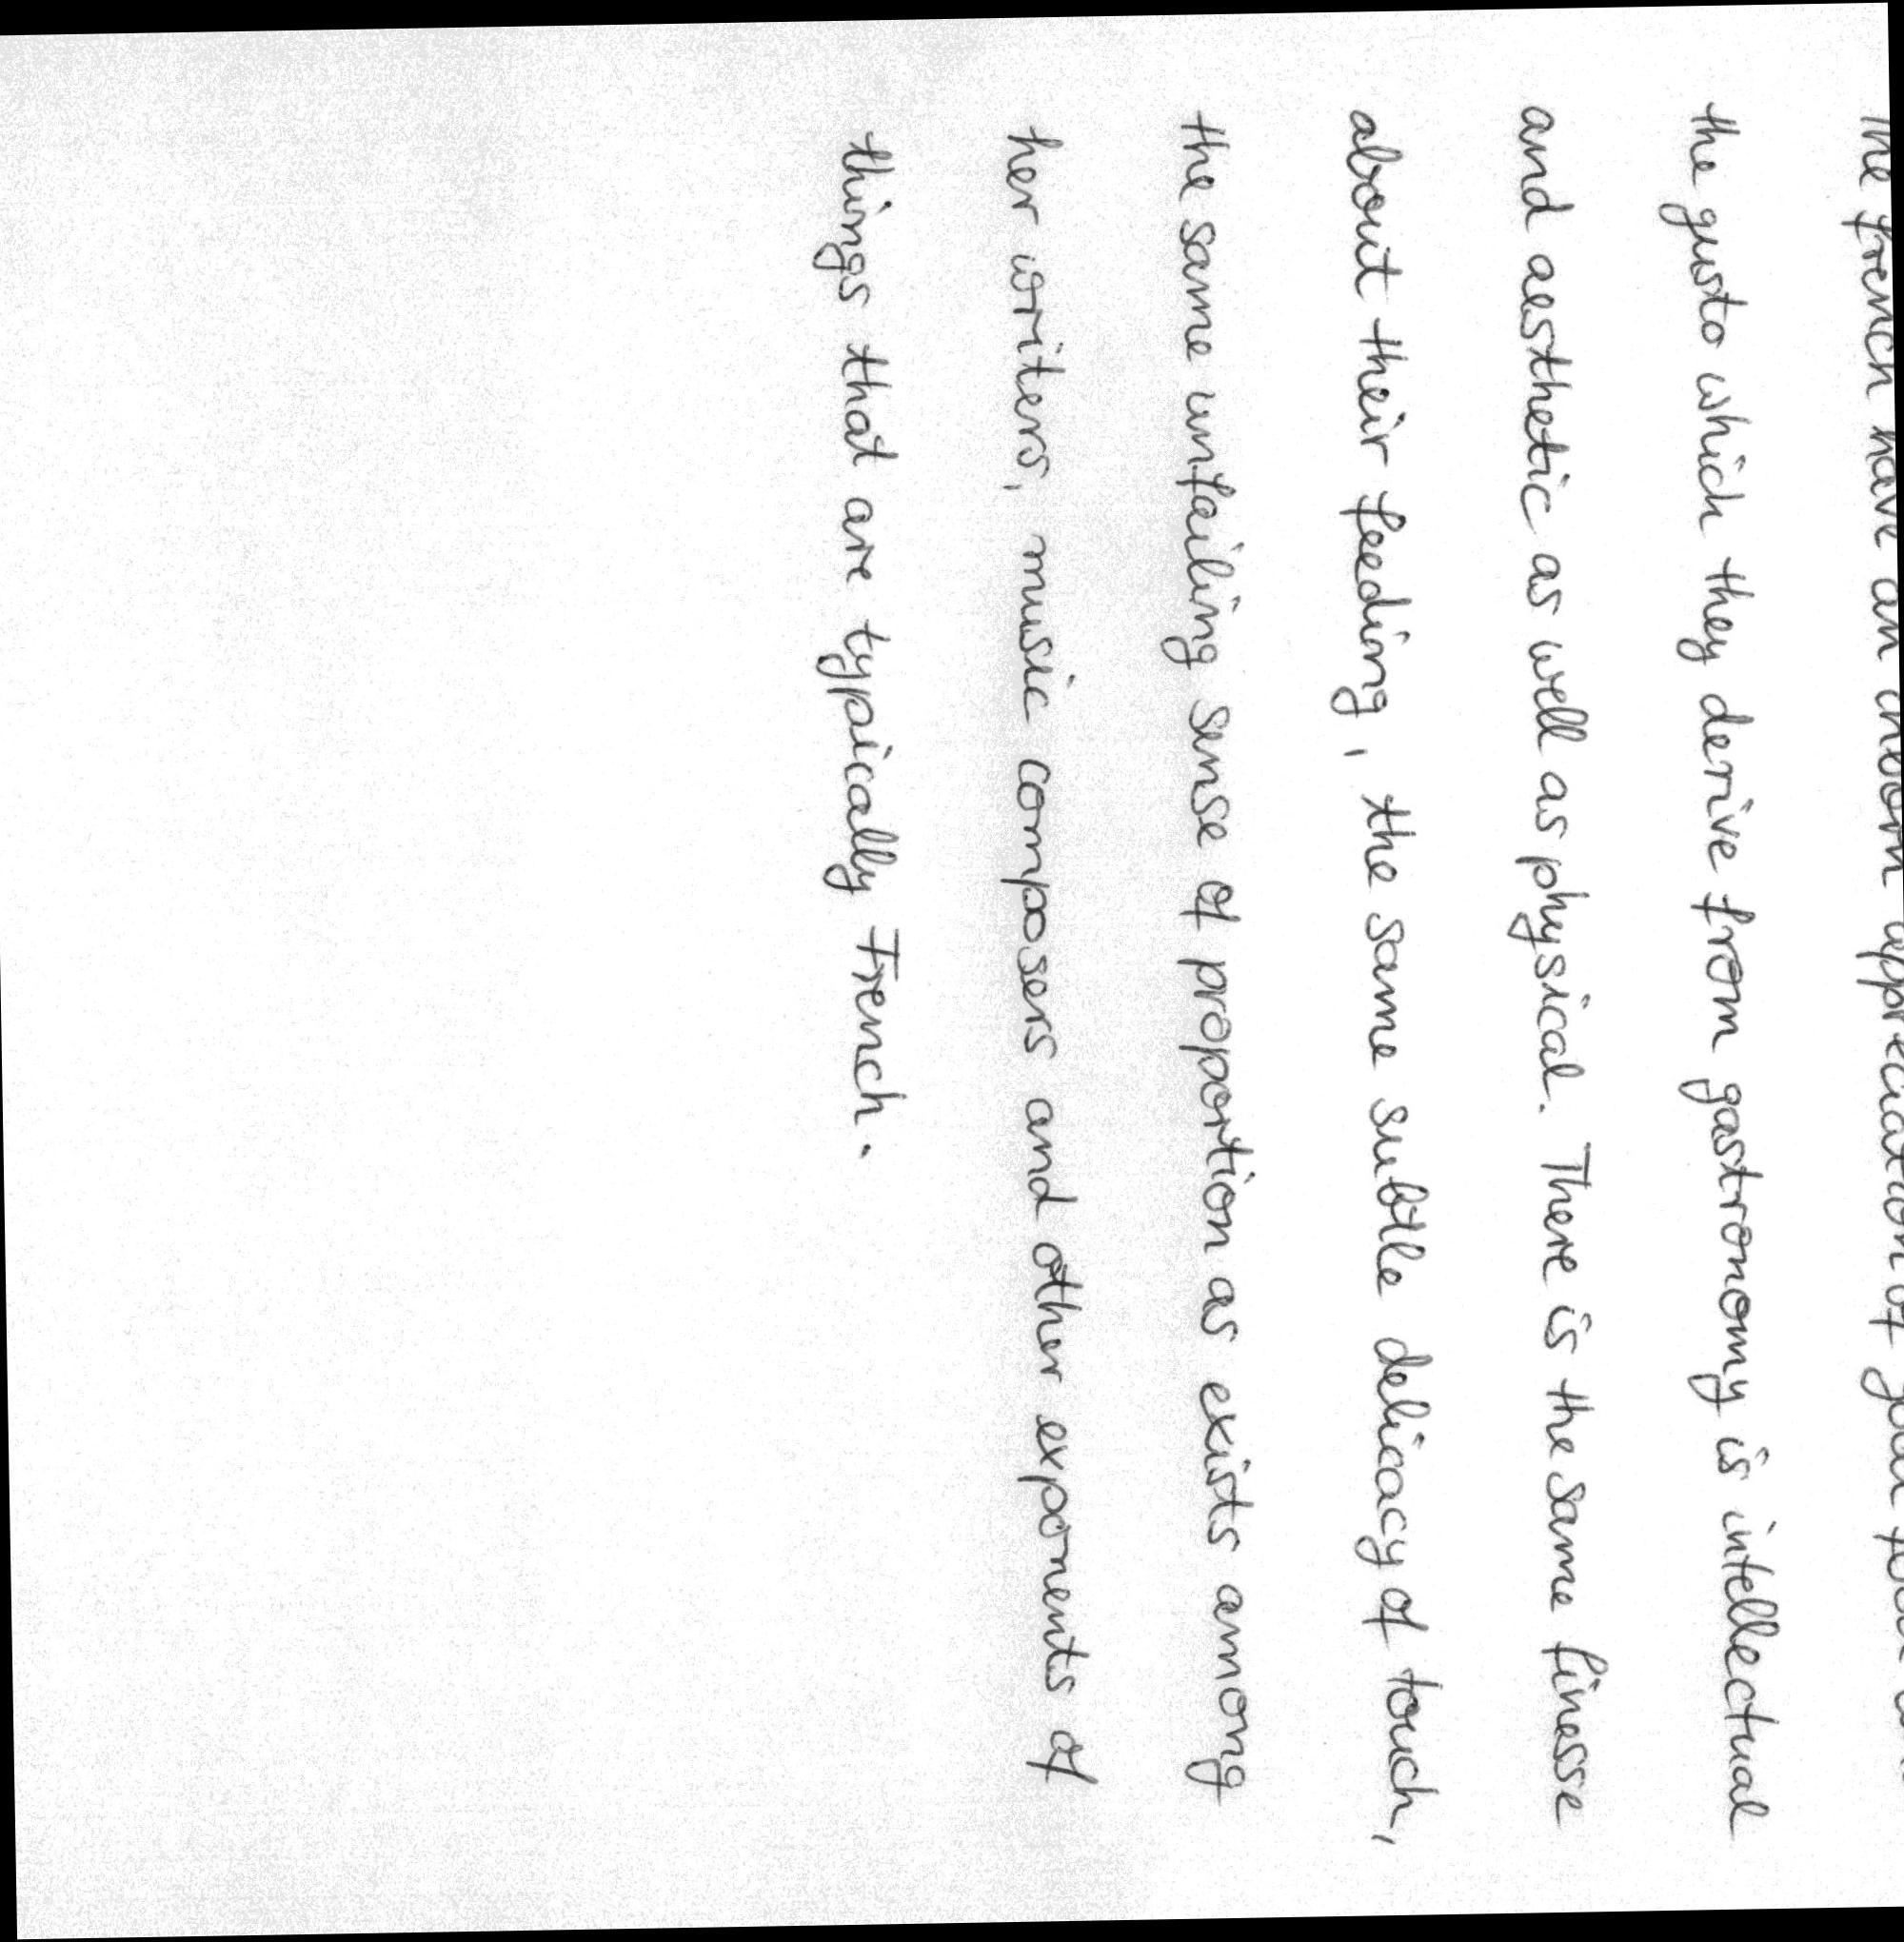 The French have an inborn appreciation of good food and
the gusto which they derive from gastronomy is intellectual
and aesthetic as well as physical. There is the same finesse
about their feeding, the same subtle delicacy of touch,
the same unfailing sense of proportion as exists among
her writers, music composers and other exponents of
things that are typically French.